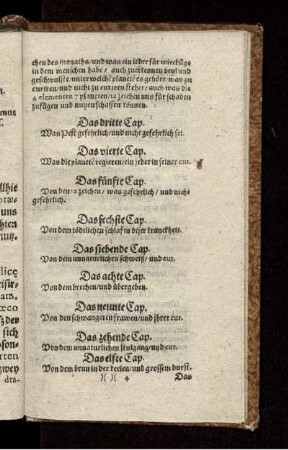 chen des monaths/ und was ein jeder für wirckũge
in dem menschen habe/ auch zuerkennen beul und
geschwulste unter welche planetē es gehöre/ was zu
curiren/ und nicht zu curiren stehet/ auch was die
4 elementen 7 planeten/ 12 zeichen uns für schaden
zufügen und nutzen schaffen können.
Das dritte Cap.
Was Pest gefehrlich/ und nicht gefehrlich sei.
Das vierte Cap.
Was die planetē/ regieren/ ein jeder in seiner cur.
Das fünfte Cap.
Von den 12 zeichen/ was gefehrlich/ und nicht
gefehrlich.
Das sechste Cap.
Von dem tödtlichen schlaf in diser kranckheit.
Das siebende Cap.
Von dem unnaturlichen schweiß/ und cur.
Das achte Cap.
Von dem brechen/ und übergeben.
Das neunte Cap.
Von den schwangeren frawen/ und jhrer cur.
Das zehende Cap.
Von dem unnaturlichen stulgang/ uñ cur.
Das elfte Cap.
Von dem brun in der keelen/ und grossem durst.
)( )( 4 Das